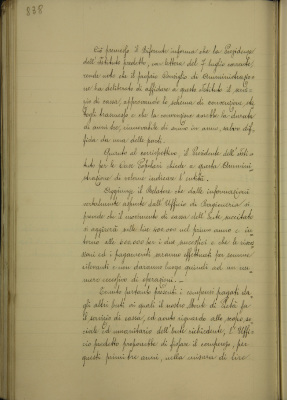 838
Ciò premesso il Riferente informa che la Presidenza
dell'Istituto predetto, con lettera del 7 luglio corrente,
rende noto che il proprio Consiglio di Amministrazio-
ne ha deliberato di affidare a questo Istituto il servi-
zio di cassa, approvando lo schema di convenzione
e che la convenzione avrebbe la durata
di anni tre, rinnovabile di anno in anno, salvo disd
da una delle parti.
Quanto al corrispettivo, il Presidente dell'Isti-
tuto per le Case Popolari chiede a questa Ammini-
strazione di volerne indicare l'entità.
Aggiunge il Relatore che dalle informazioni
assunte dall'Ufficio di Ragioneria si
prevede che il movimento di cassa dell'Ente succitato
si aggirerà sulle lire 400.000 nel primo anno e in-
torno alle 600.000 per i due successivi e che le riscos-
sioni ed i pagamenti saranno effettuati per somme
rilevanti e non daranno luogo quindi ad un nu-
mero eccessivo di operazioni.
Tenuto pertanto presenti i compensi pagati da-
gli altri Enti coi quali il nostro Monte di Pietà fa
il servizio di cassa, ed avuto riguardo allo scopo so-
ciale ed umanitario dell'Ente richiedente, l'Uffi-
cio predetto proporrebbe di fissare il compenso, per
questi primi tre anni, nella misura di lire